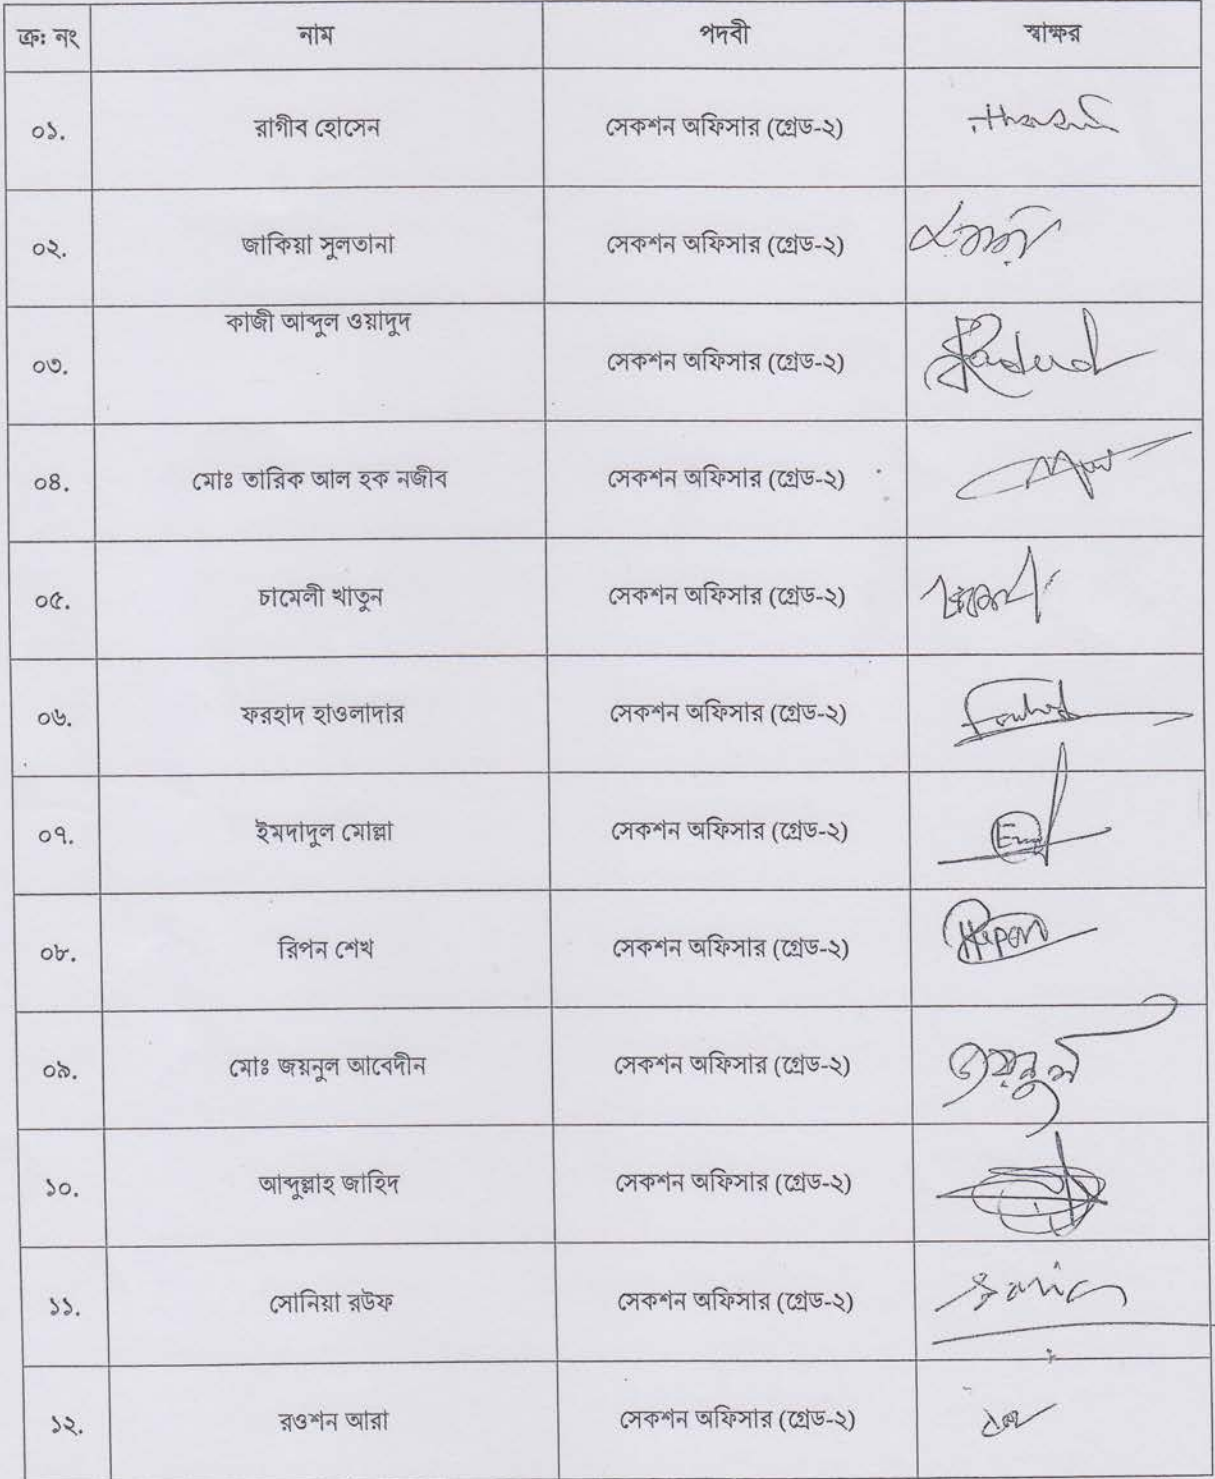 ক্র: নং নাম পদবী স্বাক্ষর
০১. রাগীব হোসেন সেকশন অফিসার (গ্রেড-২)
০২. জাকিয়া সুলতানা সেকশন অফিসার (গ্রেড-২)
০৩. কাজী আব্দুল ওয়াদুদ সেকশন অফিসার (গ্রেড-২)
০৪. মোঃ তারিক আল হক নজীব সেকশন অফিসার (গ্রেড-২)
০৫. চামেলী খাতুন সেকশন অফিসার (গ্রেড-২)
০৬. ফরহাদ হাওলাদার সেকশন অফিসার (গ্রেড-২)
০৭. ইমদাদুল মোল্লা সেকশন অফিসার (গ্রেড-২)
০৮. রিপন শেখ সেকশন অফিসার (গ্রেড-২) Ripon
০৯. মোঃ জয়নুল আবেদীন সেকশন অফিসার (গ্রেড-২) জয়নুল
১০. আব্দুল্লাহ জাহিদ সেকশন অফিসার (গ্রেড-২)
১১. সোনিয়া রউফ সেকশন অফিসার (গ্রেড-২) Sonia
১২. রওশন আরা সেকশন অফিসার (গ্রেড-২)